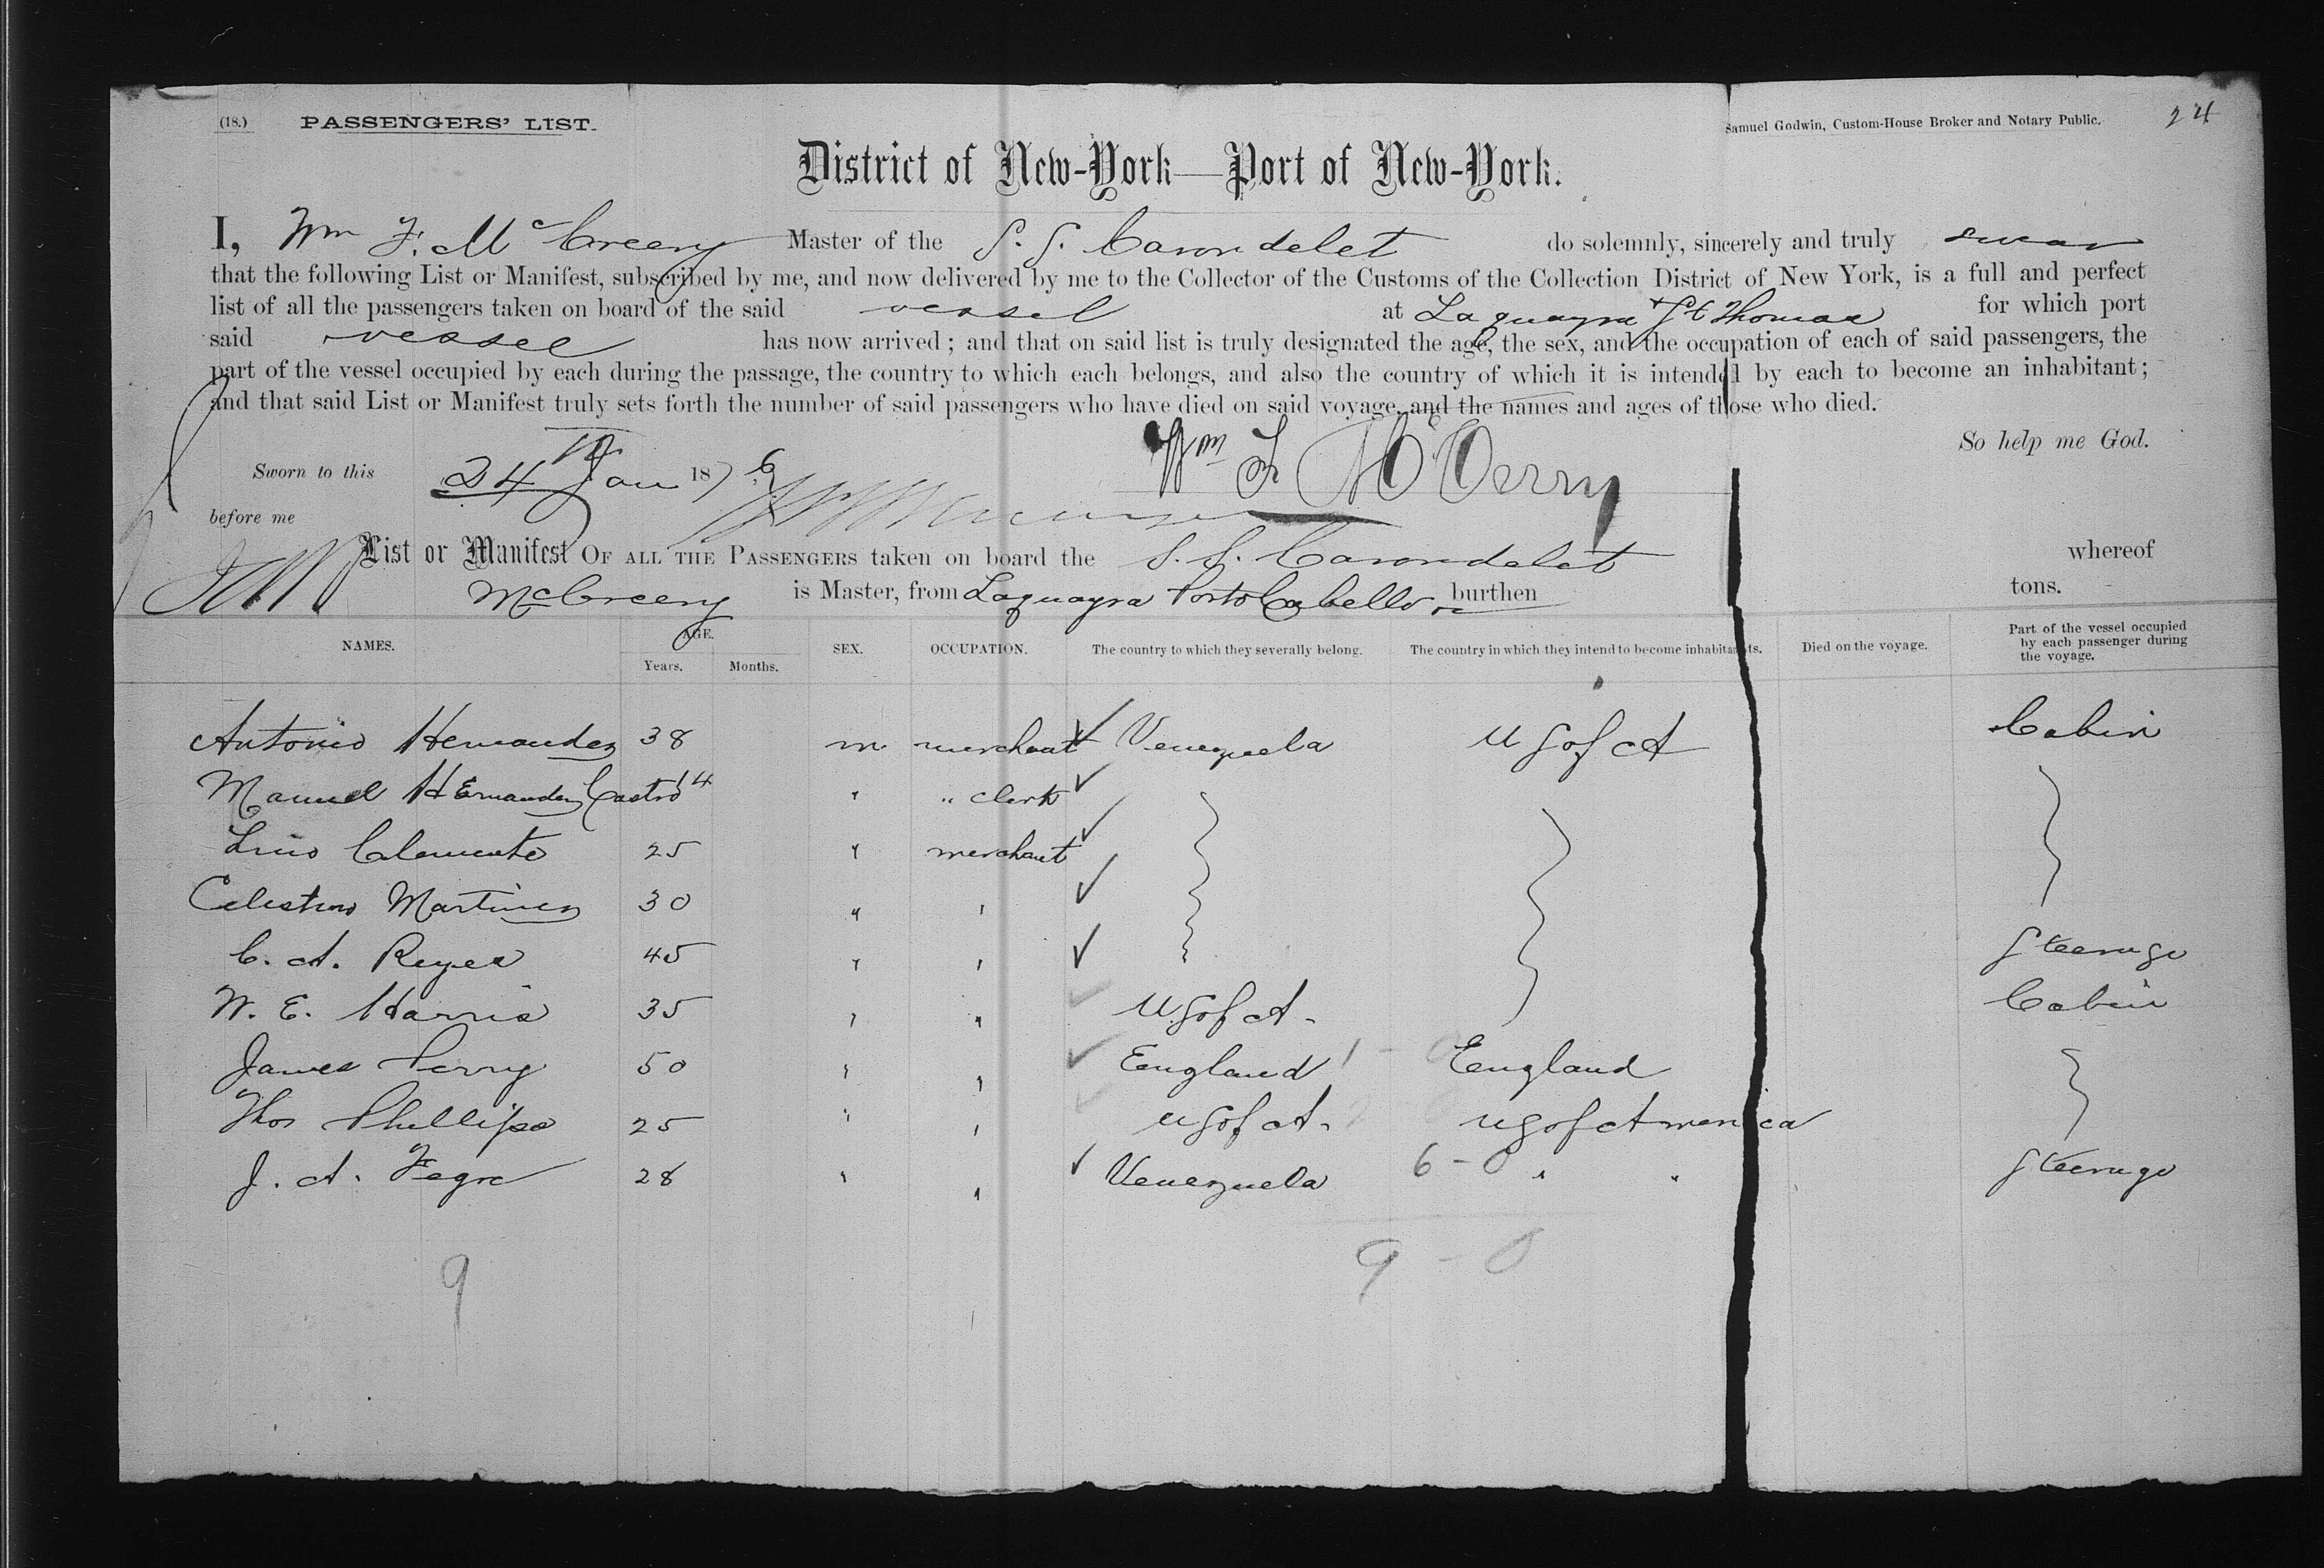 (18.) PASSENGERS' LIST. Samuel Godwin, Custom-House Broker and Notary Public. 24
District of New-York—Port of New-York.
I, Wm F. McCreery Master of the S. S. Carondelet do solemnly, sincerely and truly swear
that the following List or Manifest, subscribed by me, and now delivered by me to the Collector of the Customs of the Collection District of New York, is a full and perfect
list of all the passengers taken on board of the said vessel at Laguayra & St Thomas for which port
said vessel has now arrived; and that on said list is truly designated the age, the sex, and the occupation of each of said passengers, the
part of the vessel occupied by each during the passage, the country to which each belongs, and also the country of which it is intended by each to become an inhabitant;
and that said List or Manifest truly sets forth the number of said passengers who have died on said voyage, and the names and ages of those who died.
So help me God.
Sworn to this 24th Jan 1876 Wm F. McCreery
before me
List or Manifest OF ALL THE PASSENGERS taken on board the S. S. Carondelet whereof
McCreery is Master, from Laguayra Porto Cabello burthen tons.
NAMES. AGE. Years. Months. SEX. OCCUPATION. The country to which they severally belong. The country in which they intend to become inhabitants. Died on the voyage. Part of the vessel occupied by each passenger during the voyage.
Antonio Hernandez 38 m merchant Venezuela U S of A Cabin
Manuel Hernandez Castro 14 " " clerk
Lino Clemente 25 " merchant
Celestino Martinez 30 " "
C. A. Reyes 45 " " Steerage
W. E. Harris 35 " " U S of A. Cabin
James Perry 50 " " England 1 - 0 England
Thos Phellips 25 " " U S of A. U S of America
J. A. Fegre 28 " " Venezuela 6 - 0 " " Steerage
9 9 - 0